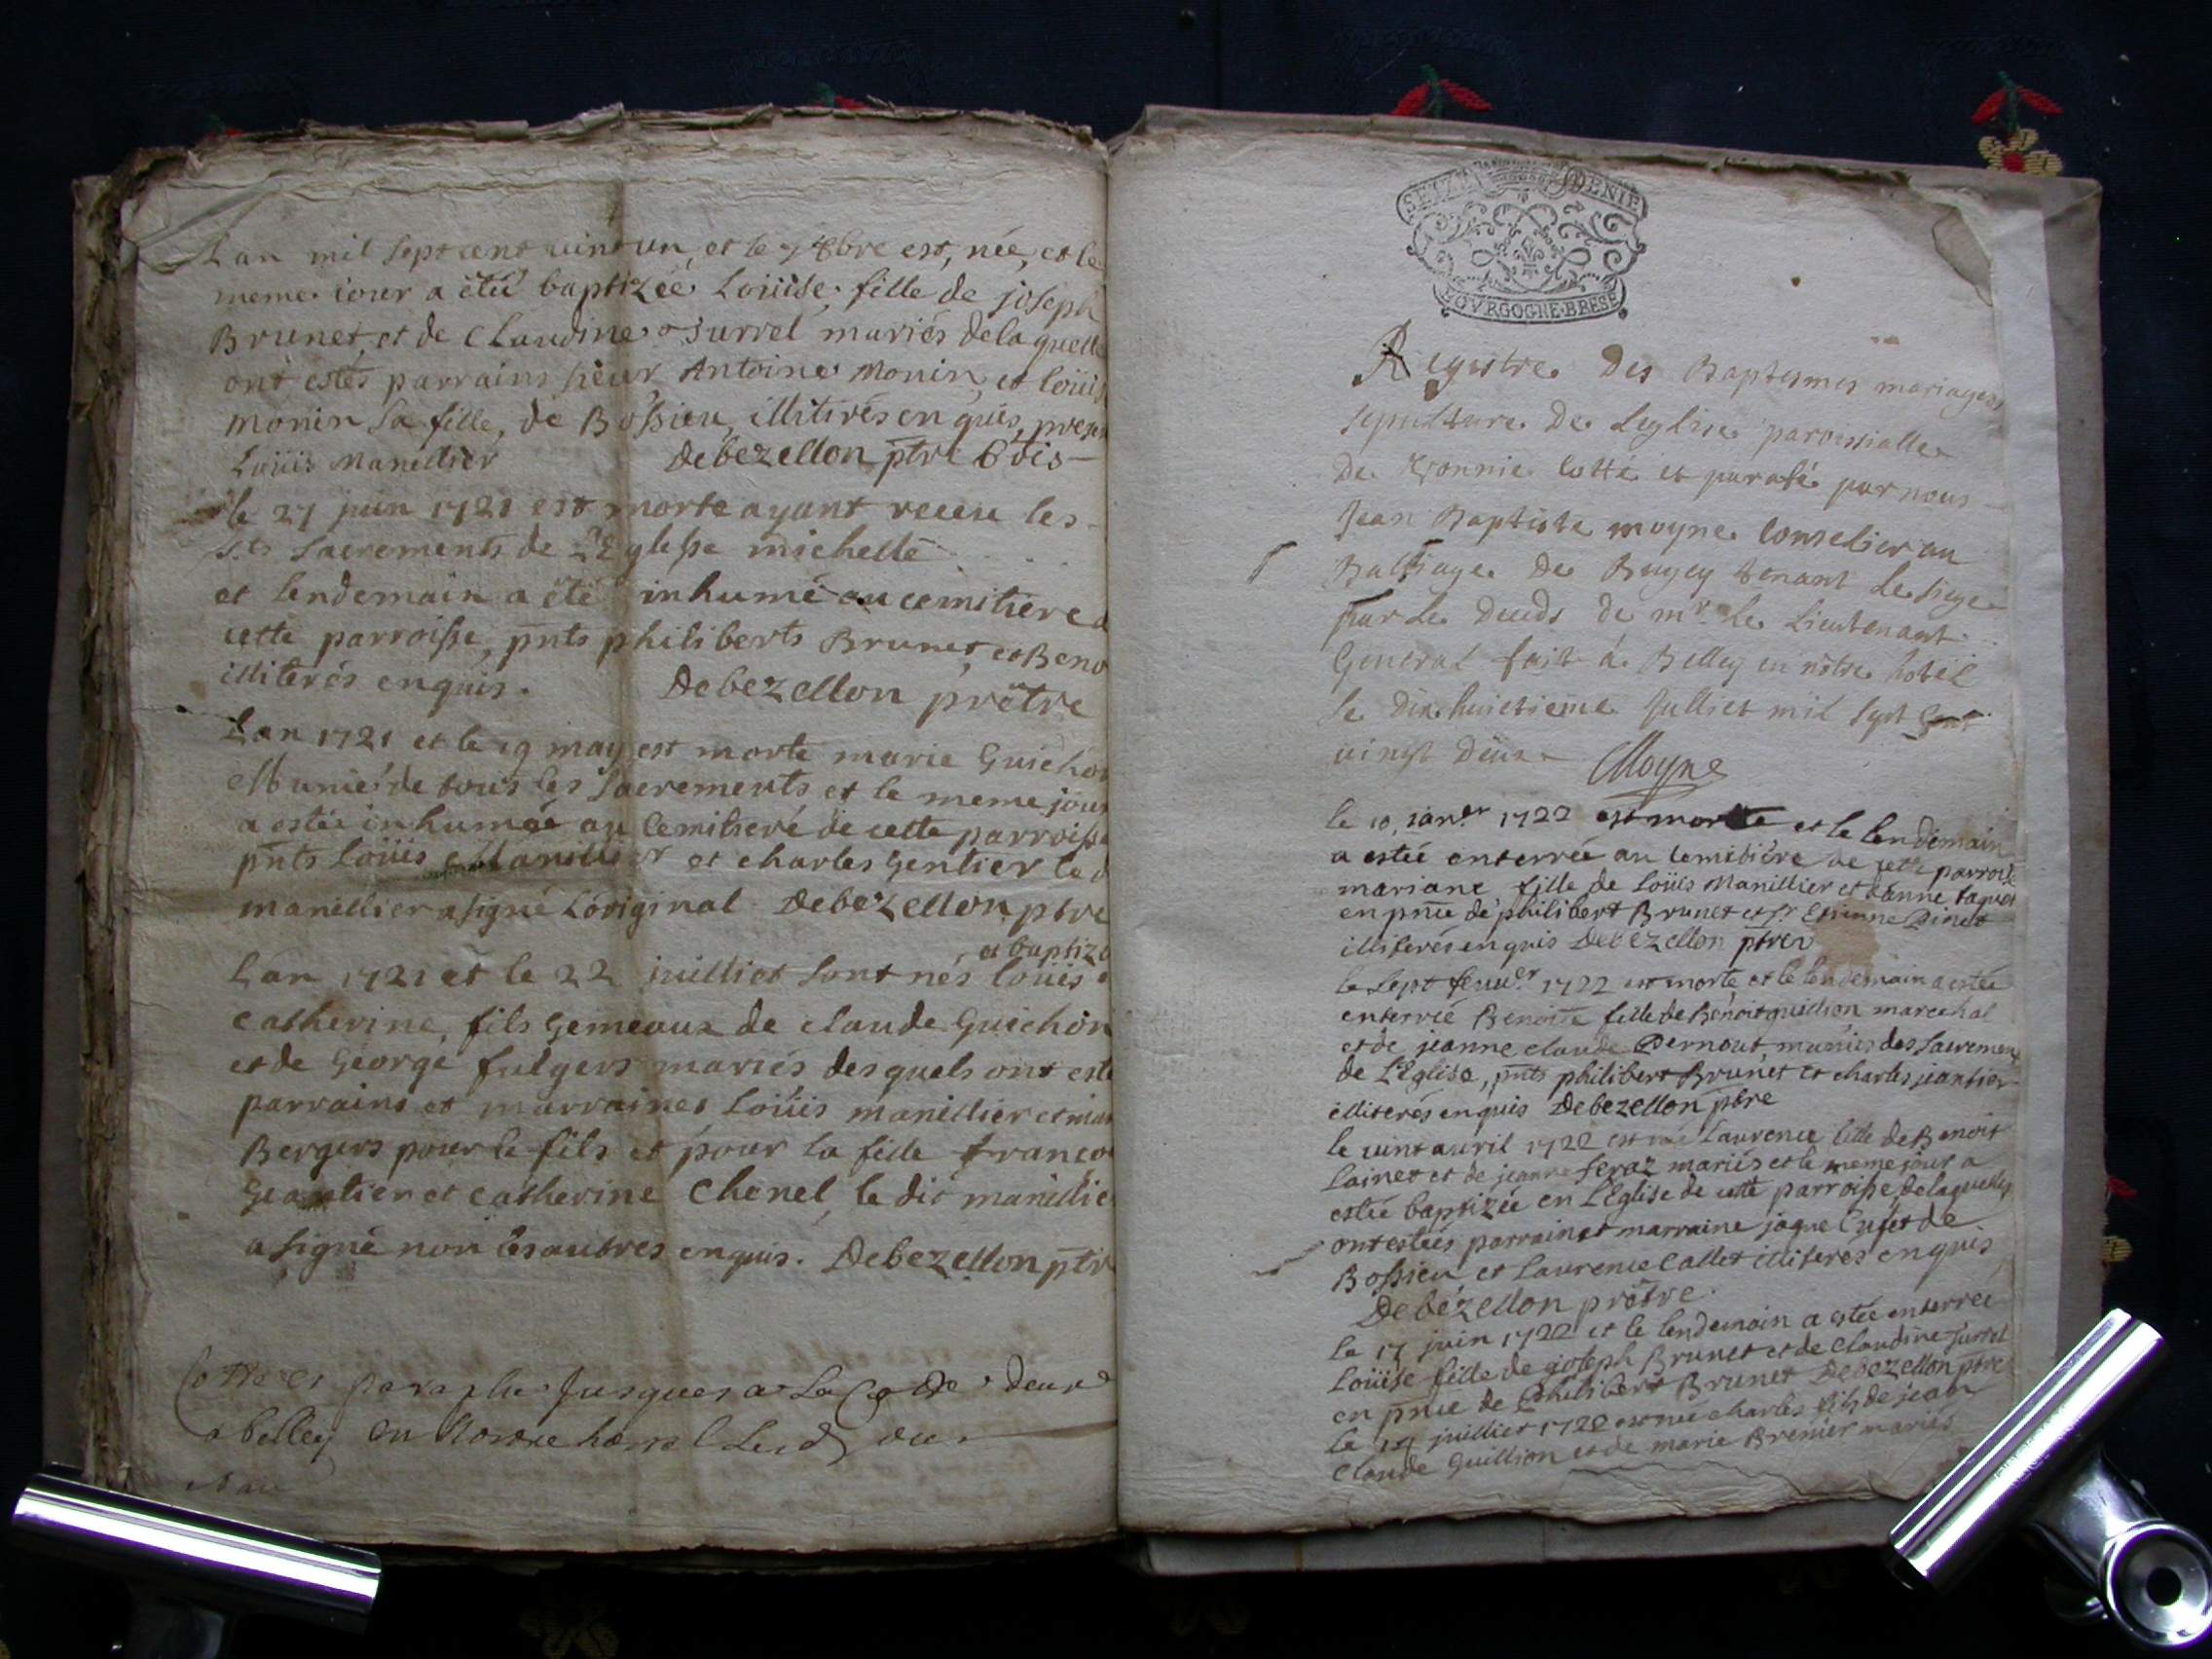 Lan mil sept cent vint un, et le 7 xbre est, née, et le
meme iour a été baptizée Loüise fille de joseph
Brunet et de Claudine Surrel mariés de la quelle
ont estés parrains sieur Antoine Monin, et loüis
monin sa fille, de Bossieu, illitirés en quis, presen
Loüis Manillier Debezellon ptre
le 27 juin 1721 est morte ayant receu les
Sts Sacrements de L'Eglesse michelle
et lendemain a été inhumé au cemitiere d
cette parroisse, pnts philiberts Brunet, et Beno
illiterés enquis. Debezellon prêtre
Lan 1721 et le 19 may est morte marie Guichon
Munie de tous les Sacrements et le meme jour
a estée inhumée au Cemitieré de cette parroisse
pnts loüis Manillier et charles Gentier le d
manillier a signé Loriginal Debezellon ptre
et baptizé
Lan 1721 et le 22 juilliet sont nés loüis
Catherine, fils Gemeaux de claude Guichon
et de George fulgers mariés des quels ont esté
parrains et marraines Loüis manillier et mar
Bergers pour le fils et pour la fille franco
Geantier et catherine Chenel, le dit manillie
a signé non les autres enquis. Debezellon ptr
Cotte et paraphe Jusques a La Cotte deux
a belley en Nostre hostel Led jour
SEIZE DENIE
BOVRGOGNE·BRESE
Registre Des Baptesmes mariages
sepulture De Leglise paroissialle
De Vonnie Cotté et parafé par nous
Jean Baptiste moyne Conselier au
Balliage De Bugey tenant Le siege
par Le deceds de mr. Le Lieutenant
General fait à Belley en nôtre hotel
le dix huictieme Julliet mil sept Cent
vingt Deux Moyne
le 10, Janer 1722 est morte et le lendemain
a estée enterrée au Cemitiére de cette parroisse
mariane fille de Loüis Manillier et danne
en pnce de philibert Brunet et sr Etienne Pinet
illiterés enquis Debezellon ptre
le sept feuvr 1722 est morte et le lendemain a estée
enterrée Benoite fille de Benoit guillion marechal
et de jeanne claude Pernout, munies des Sacremen
de L'Eglise, pnts philibert Brunet et charles jeantier
illiterés enquis Debezellon ptre
le vint avril 1722 est née Laurence fille de Benoit
Lainet et de jeanne feraz mariés et le meme jour a
estée baptizée en L'Eglise de cette parroisse, de laquelle
ont estées parrain et marraine jaque Cufet de
Bossieu, et Laurence Callet illiteres enquis
Debezellon prêtre.
le 17 juin 1722 et le lendemain a estée enterrée
Loüise fille de joseph Brunet et de Claudine Surrel
en pnce de Philibert Brunet Debezellon ptre
le 14 juillier 1722 est né charles fils de jean
Claude Guillion et de marie Brenier mariés